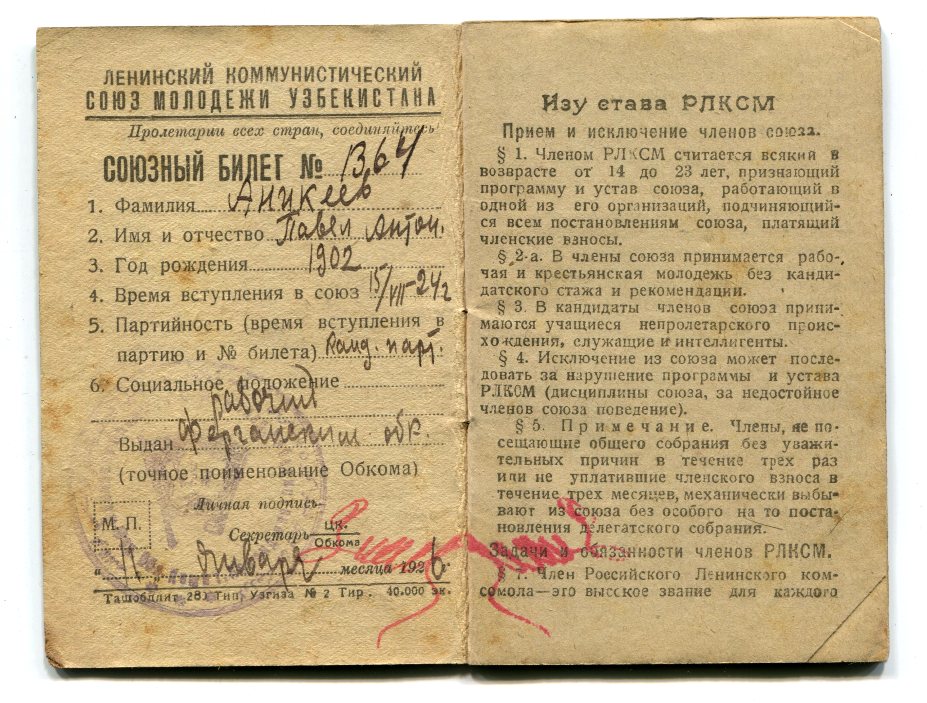 ЛЕНИНСКИЙ КОММУНИСТИЧЕСКИЙ
СОЮЗ МОЛОДЕЖИ УЗБЕКИСТАНА
Пролетарии всех стран, соединяйтесь!
СОЮЗНЫЙ БИЛЕТ № 1364
1. Фамилия Аникеев
2. Имя и отчество Павел Антон.
3. Год рождения 1902
4. Время вступления в союз 15/VII-24 г
5. Партийность (время вступления в
партию и № билета) Канд. парт.
6. Социальное положение
рабочий
Выдан Ферганским обк.
(точное поименование Обкома)
Личная подпись
М. П.
Секретарь ЦК. Обкома
"11" Января месяца 1926 г.
Ташоблит 28) Тип. Узгиза № 2 Тир. 40.000 эк.
Из устава РЛКСМ
Прием и исключение членов союза.
§ 1. Членом РЛКСМ считается всякий в
возврасте от 14 до 23 лет, признающий
программу и устав союза, работающий в
одной из его организаций, подчиняющий-
ся всем постановлениям союза, платящий
членские взносы.
§ 2-а. В члены союза принимается рабо-
чая и крестьянская молодежь без канди-
датского стажа и рекомендации.
§ 3. В кандидаты членов союза прини-
маются учащиеся непролетарского проис-
хождения, служащие и интеллигенты.
§ 4. Исключение из союза может после-
довать за нарушение программы и устава
РЛКСМ (дисциплины союза, за недостойное
членов союза поведение).
§ 5. Примечание. Члены, не по-
сещающие общего собрания без уважи-
тельных причин в течение трех раз
или не уплатившие членского взноса в
течение трех месяцев, механически выбы-
вают из союза без особого на то поста-
новления делегатского собрания.
Задачи и обязанности членов РЛКСМ.
§ 7. Член Российского Ленинского ком-
сомола—это высское звание для каждого